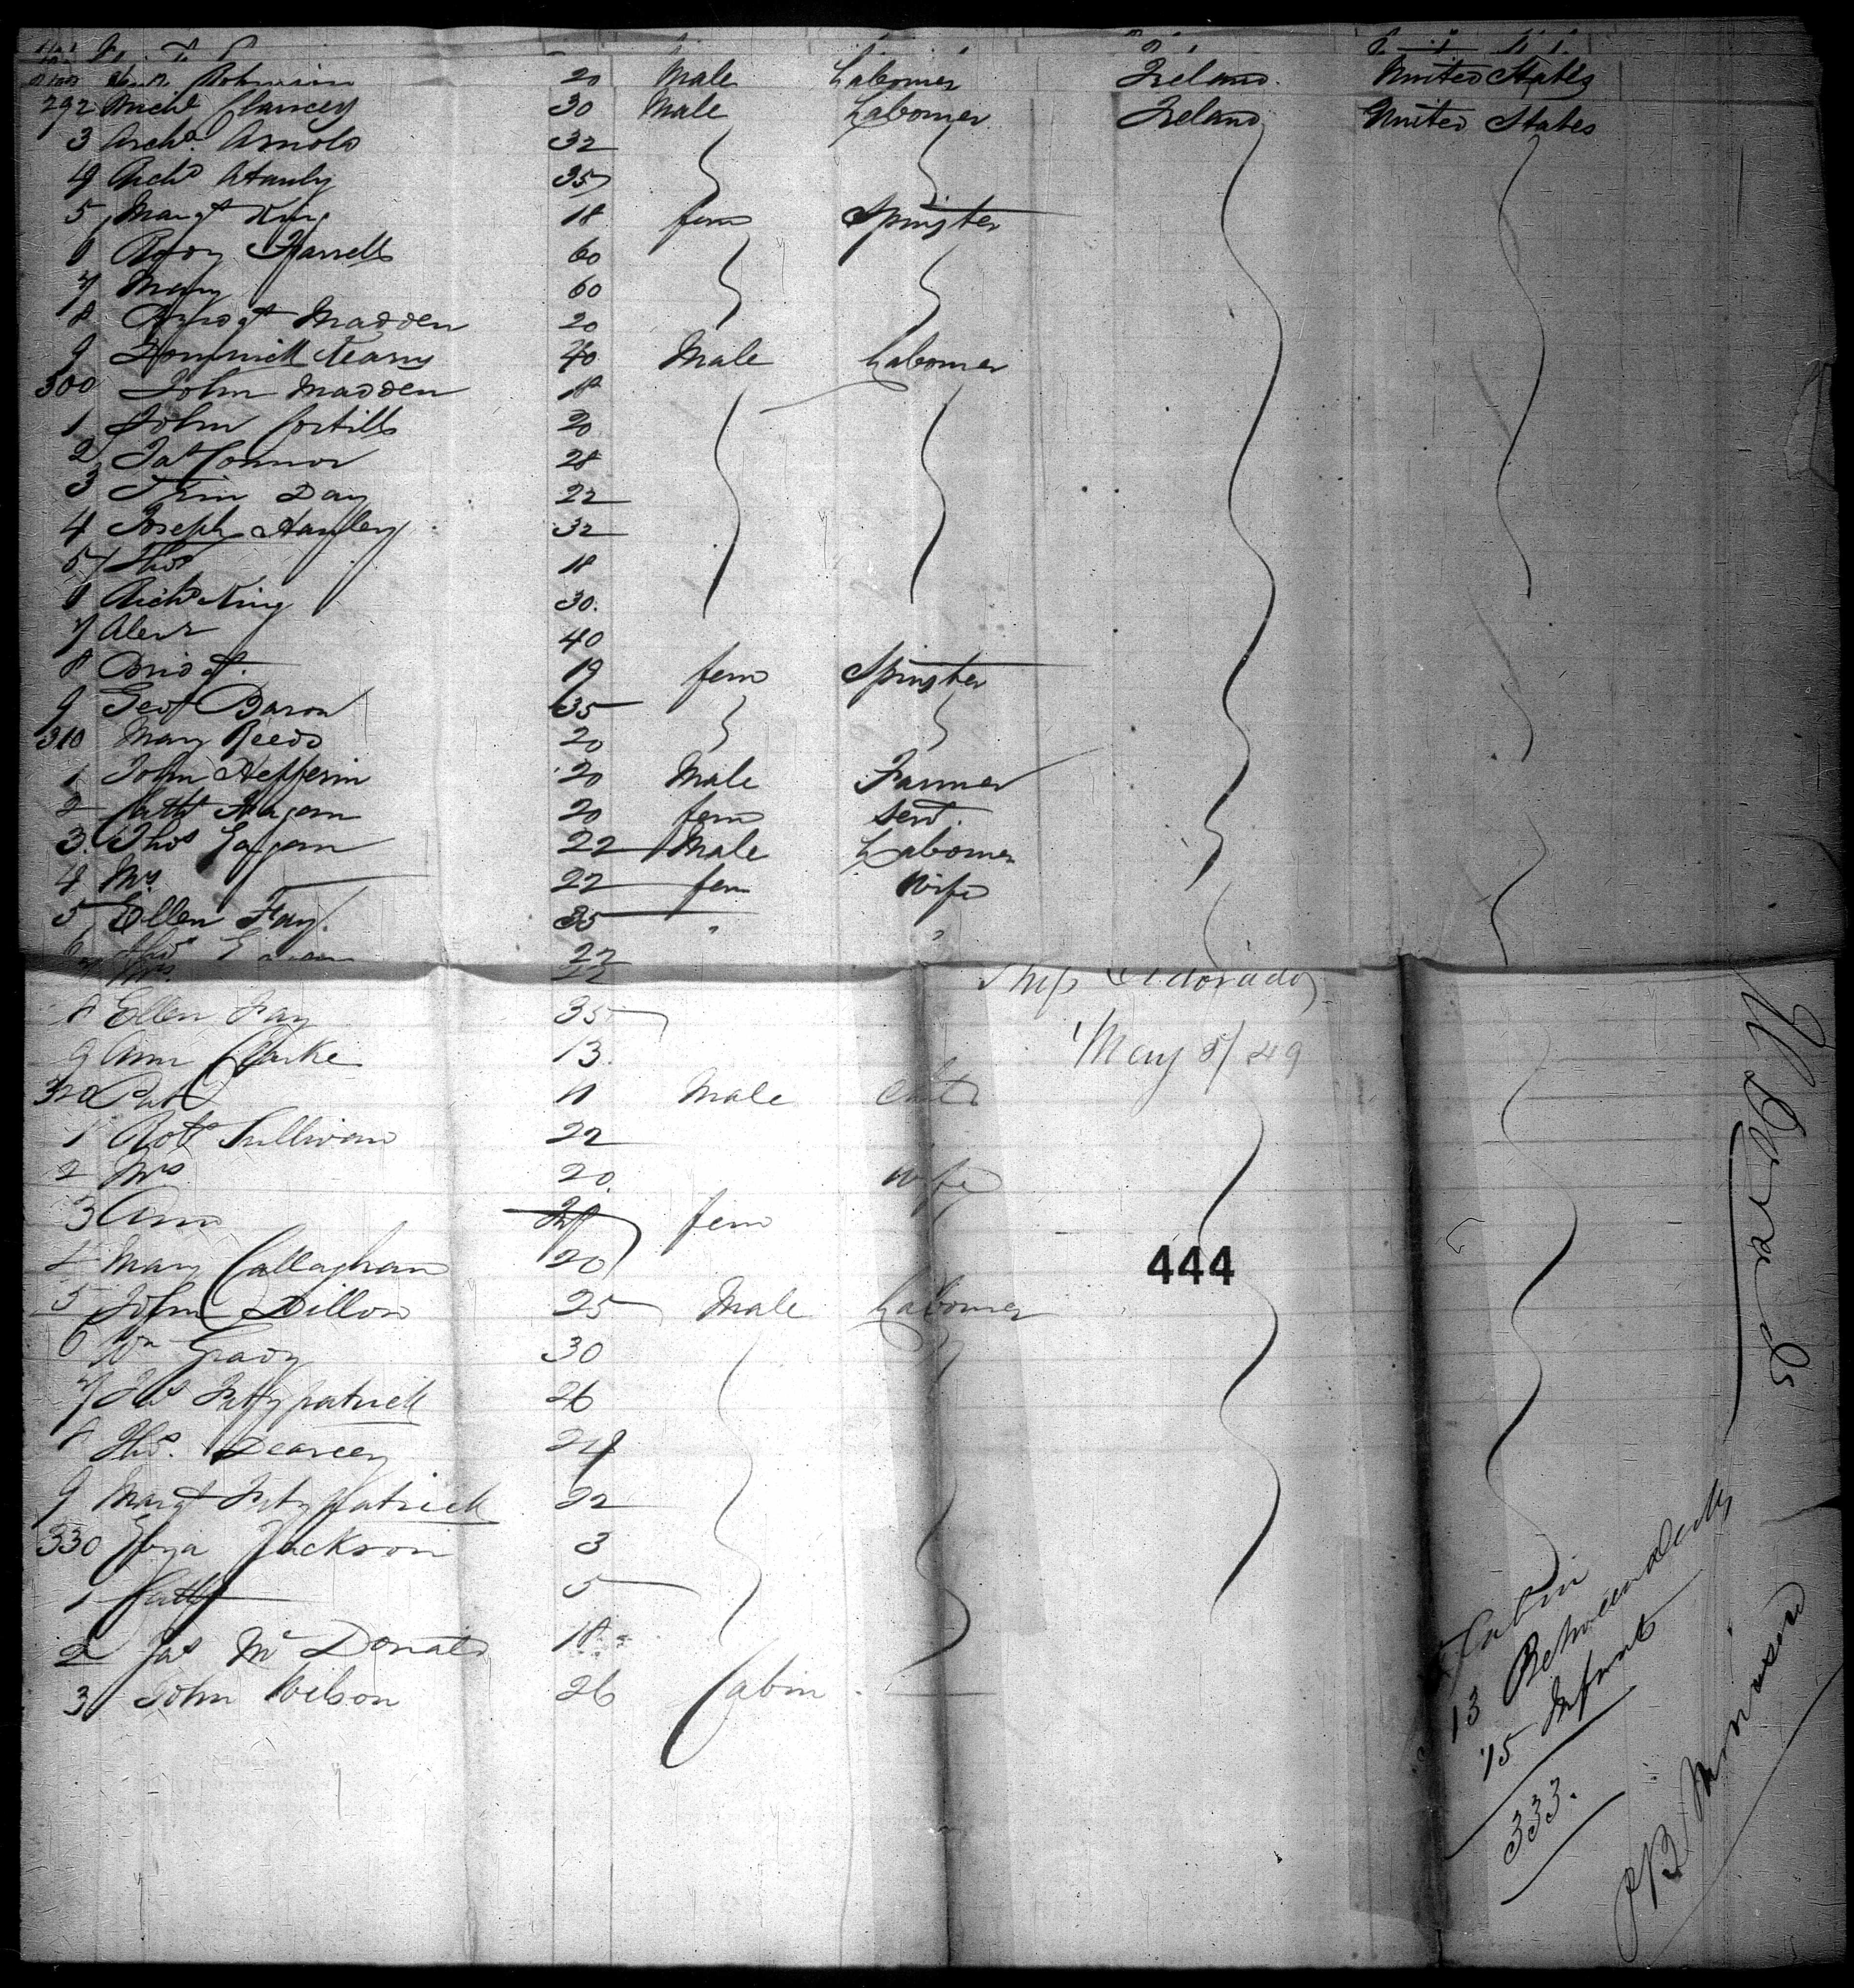 Robinson 20 Male Labourer Ireland. United States
292 Michl Clancey 30 Male Labourer Ireland United States
3 Archd. Arnold 32
4 Richd Hanly 35
5 Margt King 18 fem Spinster
6 Farrell 60
7 Mary 60
8 Bridgt Madden 20
9 Dominick Kearns 40 Male Labourer
300 John Madden 18
1 John Costills 20
2 Jas Connor 28
3 Day 22
4 Joseph Hanley 32
5 Thos 18
6 Richd King 30.
7 Alexr 40
8 Bridgt. 19 fem Spinster
9 Baron 35
310 Mary Reeds 20
1 John Hefferin 20 Male Farmer
2 Cathe Hagan 20 fem Servt.
3. Thos Eagan 22 Male Labourer
4 Mrs. 22 fem Wife
5 Ellen Fay. 35 " "
6 Thos 22
Mrs. 22
Ship Eldorado
8 Ellen Fay 35
May 5/49
9 Ann Clarke 13.
320 Pat 11 Male
1 Robt Sullivan 22
2 Mrs 20. Wife
3 Ann fem
444
4 Mary Callaghan 20
5 John Dillon 25 Male Labourer
6 Wm Grady 30
7 Fitzpatrick 26
8 Thos. Dearcey 24
9 Margt Fitzpatrick 22
330 Eliza Jackson 3
1 Cathe 5
2 Jas McDonald 18
3 John Wilson 26 Cabin
Cabin
13 Between decks
15 Infants
333.